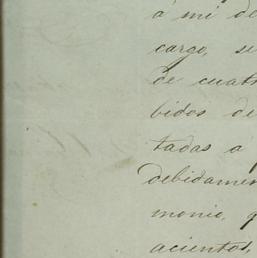 á mi de
cargo, se
de cuat
bidos de
tadas a
debidamen
monio, q
acientos,